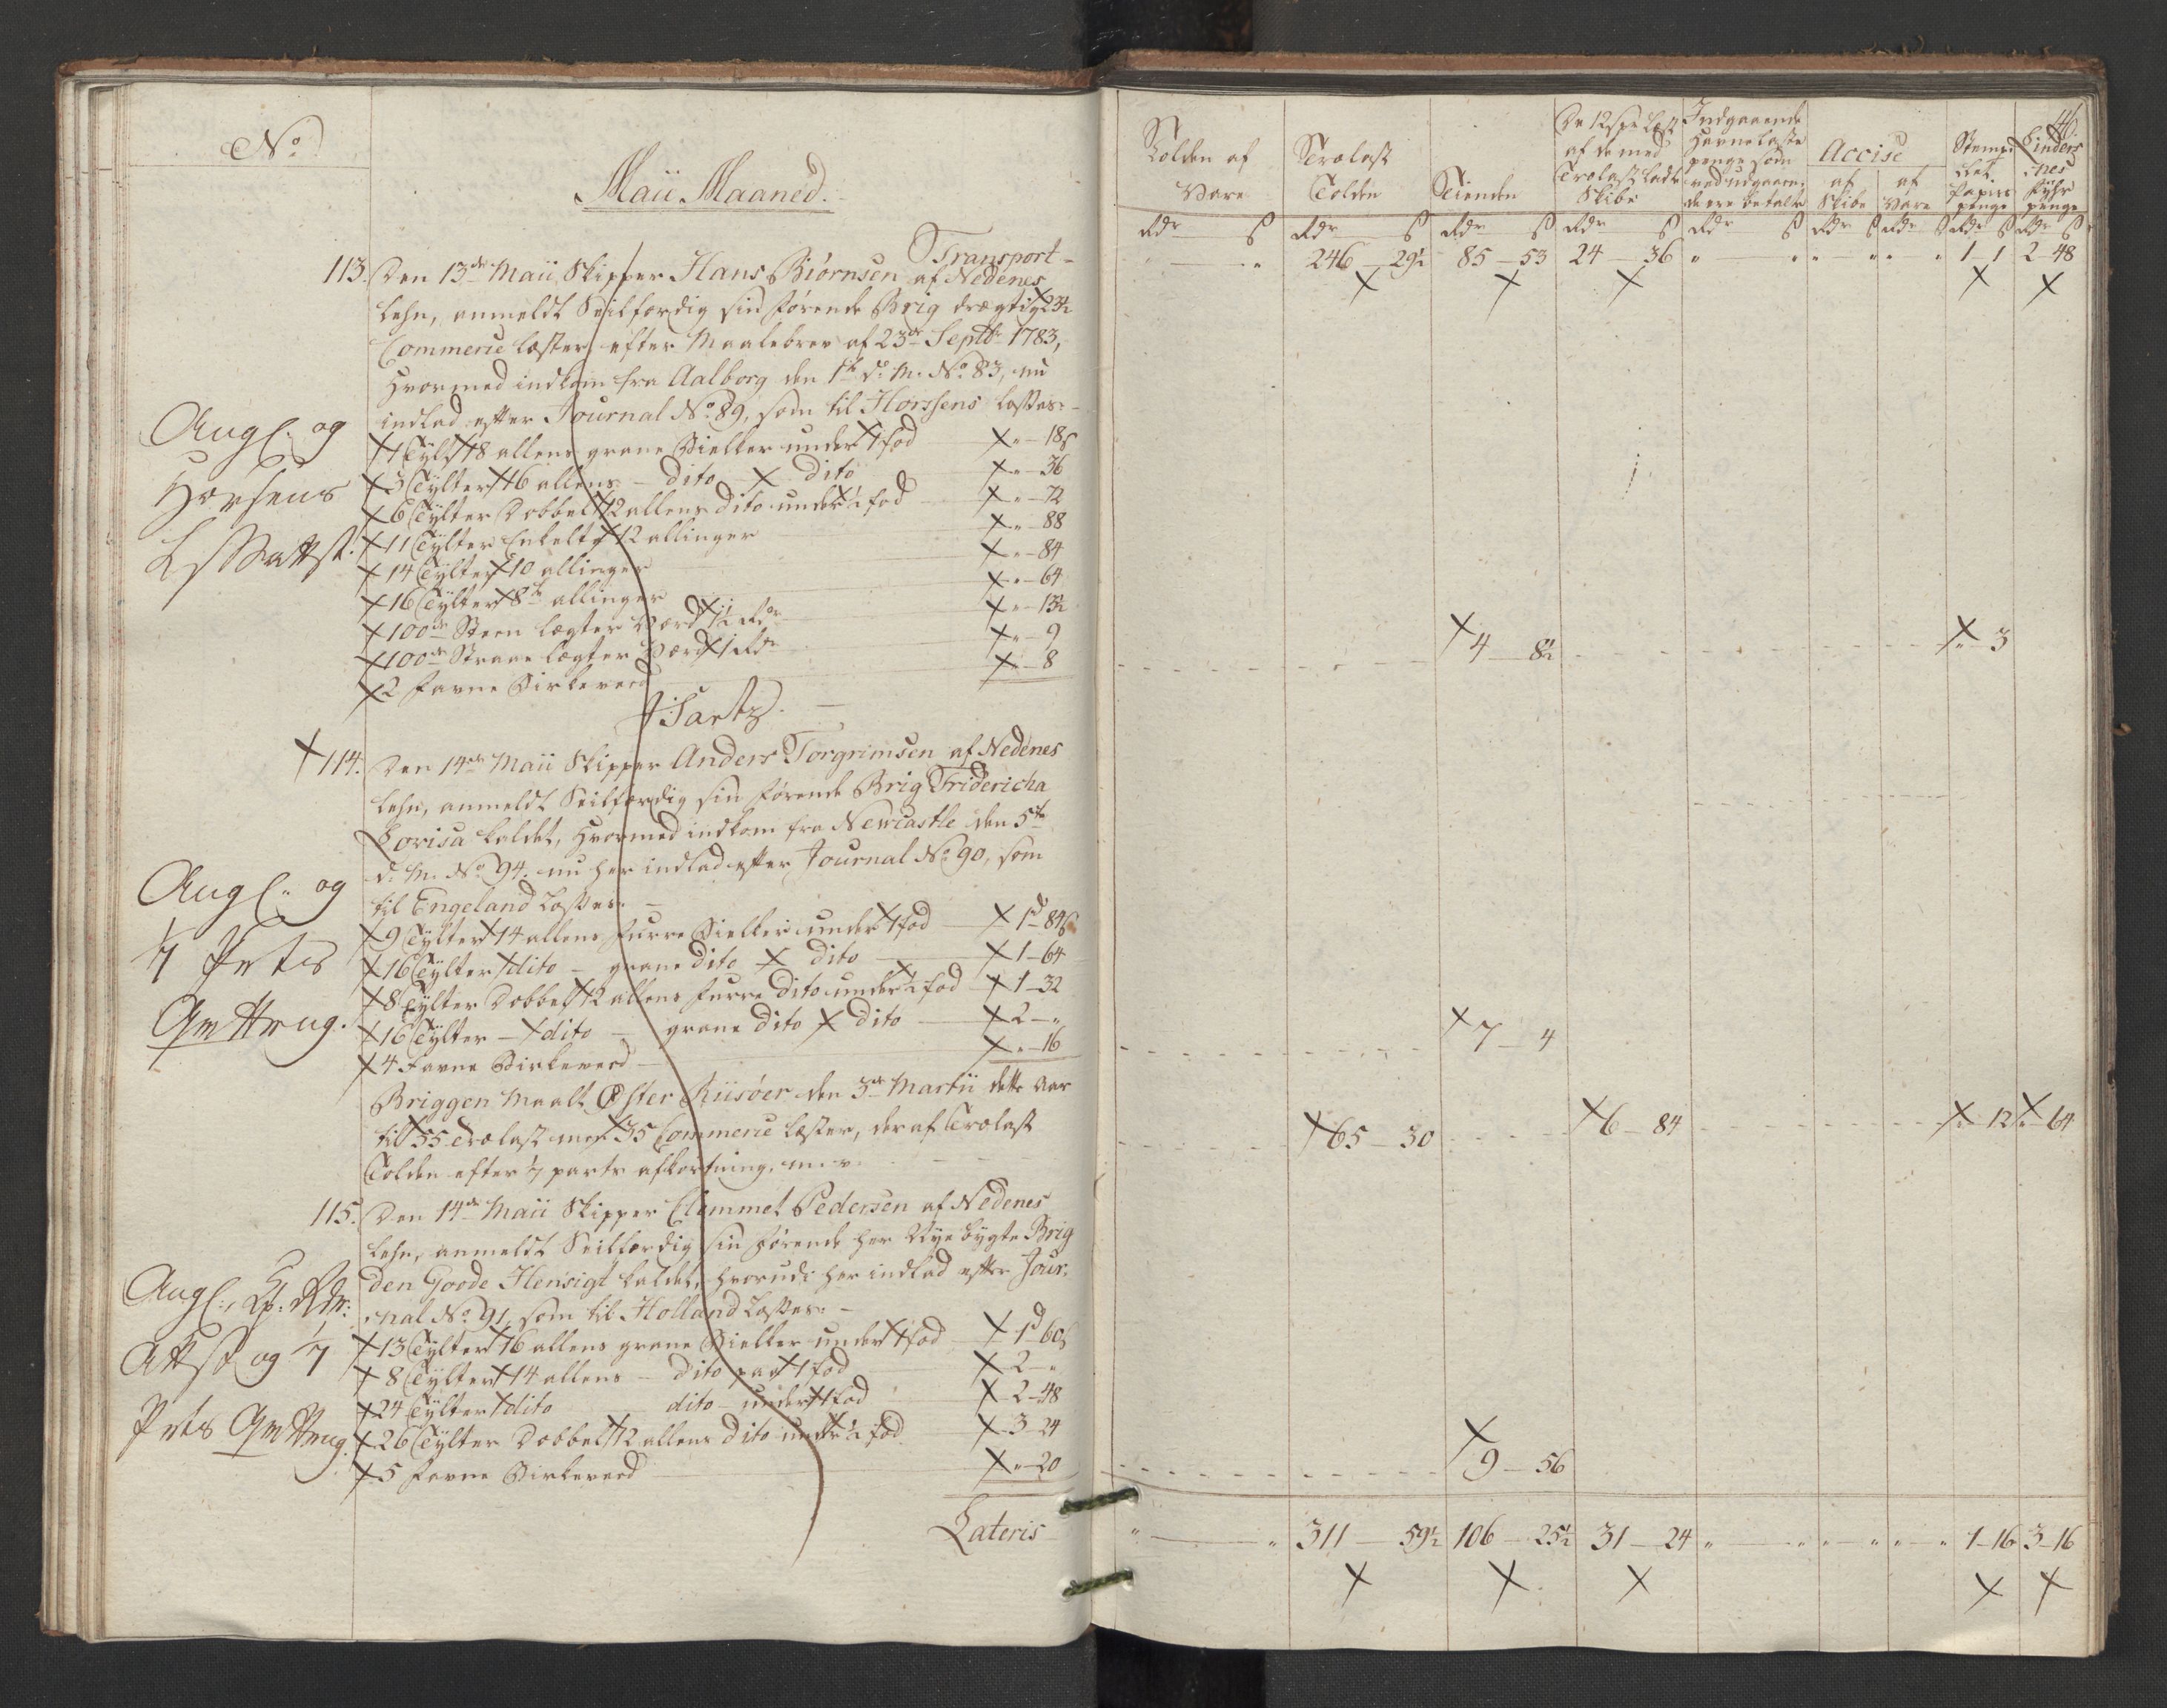 No
Maii Maaned.
Transport
113. Den 13de Maii Skipper Hans Biørnsen af Nedenes
Lehn, anmeldt Seilfærdig sin førende Brig drægtig 23½
Commerce læster, efter Maalebrev af 23de Septbr 1783,
Hvormed indkom fra Aalborg den 1ste d. M. No. 83, nu
indlad efter Journal No. 89, som til Horssens losses:
1 Tylt 18 allens grane Bielker under 1 fod " - 18 s
3 Tylter 16 allens - dito dito " - 36
6 Tylter Dobbelt 12 allens dito under ½ fod " - 72
11 Tylter Enkelt 12 allinger " - 88
14 Tylter 10 allinger " - 84
16 Tylter 8te allinger " - 64
100de Steen lægter Værd 1½ Rdr " - 13½
100de Straae lægter Værd 1 Rdr " - 9
2 favne Birkeveed " - 8
Angl. og
Horsens
Attst.
114. Den 14de Maii Skipper Anders Torgrimsen af Nedenes
Lehn, anmeldt Seilfærdig sin førende Brig Fridericha
Lovisa kaldet, Hvormed indkom fra Newcastle den 5te
d. M. No. 94. nu her indlad efter Journal No. 90, som
til Engeland losses:
9 Tylter 14 allens furre Bielker under 1 fod 1d 84s
16 Tylter dito - grane dito dito 1 - 64
8 Tylter Dobbelt 12 allens furre dito under ½ fod 1 - 32
16 Tylter - dito - grane dito dito 2 - "
4 favne Birkeveed " - 16
Briggen maalt Øster Riisøer den 3de Martii dette Aar
til 55 Trolast med 35 Commerce læster, deraf Trolast
Tolden efter 1/7 parts afkortning. m. v.
Angl. og
1/7 Prts
115. Den 14de Maii Skipper Clemmet Pedersen af Nedenes
Lehn, anmeldt Seilfærdig sin førende her Nye bygte Brig
den Goode Hensigt kaldet, hvorudi her indlad efter Jour:
nal No. 91, som til Holland losses:
13 Tylter 16 allens grane Bielker under 1 fod 1d 60s
8 Tylter 14 allens - dito paa 1 fod 2 - "
24 Tylter dito dito - under 1 fod 2 - 48
26 Tylter Dobbelt 12 allens dito under ½ fod 3 - 24
5 favne Birkeveed " - 20
Angl.,
Attst og 1/7
Prts
Lateris
46.
Tolden af Vare
Trolast Tolden
Tienden
De 12 s pr Læst af de med Trolast ladte Skibe
Indgaaende Havne laste penge som ved udgaaende ere betalte
Accise
af Skibe
af Vare
Stemplet Papiirs penge
Linders nes fyhr penge
Rdr s Rdr s Rdr s Rdr s Rdr s Rdr s Rdr s Rdr s Rdr s
" " 246 - 29½ 85 - 53 24 - 36 " " " " " " 1 - 1 2 - 48
4 - 8½ " - 3
7 - 4
65 - 30 6 - 84 " - 12 " - 64
9 - 56
" " 311 - 59½ 106 - 25½ 31 - 24 " " " " " " 1 - 16 3 - 16